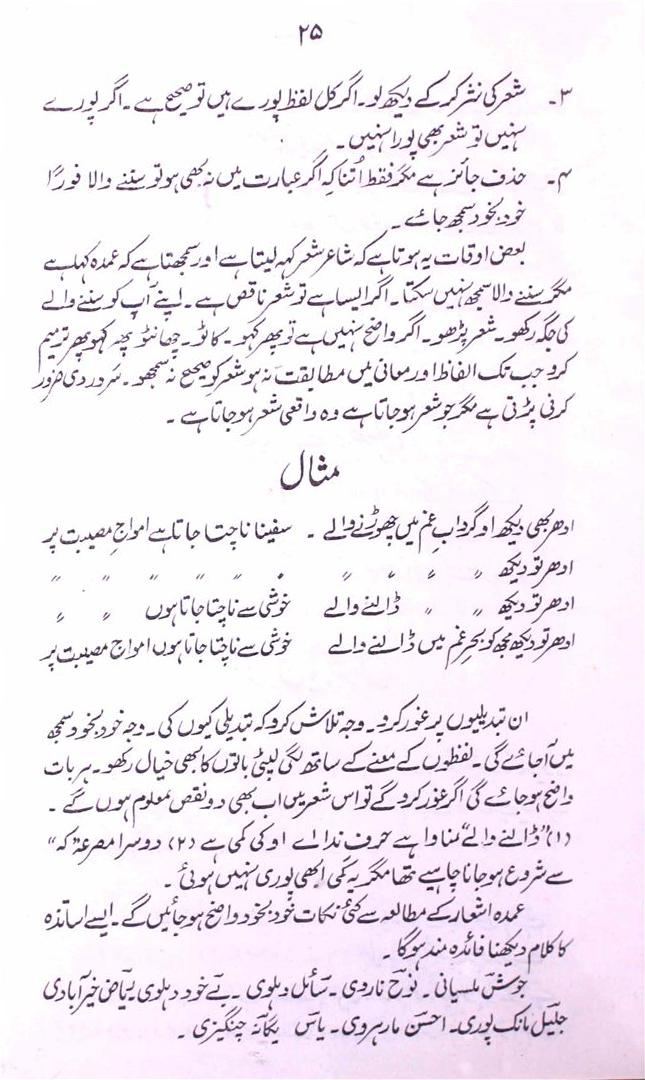 ۲۵
۳۔ شعر کی نثر کر کے دیکھ لو۔ اگر کل لفظ پورے ہیں تو صحیح ہے۔ اگر پورے
نہیں تو شعر بھی پورا نہیں۔
۴۔ حذف جائز ہے مگر فقط اُتنا کہ اگر عبارت میں نہ بھی ہو تو سننے والا فوراً
خود بخود سمجھ جائے۔
بعض اوقات یہ ہوتا ہے کہ شاعر شعر کہہ لیتا ہے اور سمجھتا ہے کہ عمدہ کہا ہے
مگر سننے والا سمجھ نہیں سکتا۔ اگر ایسا ہے تو شعر ناقص ہے۔ اپنے آپ کو سننے والے
کی جگہ رکھو۔ شعر پڑھو۔ اگر واضح نہیں ہے تو پھر کہو۔ کاٹو۔ چھانٹو پھر کہو پھر ترمیم
کرو جب تک الفاظ اور معانی میں مطابقت نہ ہو شعر کو صحیح نہ سمجھو۔ سر دردی ضرور
کرنی پڑتی ہے مگر جو شعر ہو جاتا ہے وہ واقعی شعر ہو جاتا ہے۔
مثال
ادھر بھی دیکھ او گرداب غم میں چھوڑنے والے ۔ سفینا ناچتا جاتا ہے امواجِ مصیبت پر
ادھر تو دیکھ 〃 〃 〃 〃 〃 〃 〃 〃 〃
ادھر تو دیکھ 〃 〃 ڈالنے والے خوشی سے ناچتا جاتا ہوں 〃 〃
ادھر تو دیکھ مجھ کو بحرِ غم میں ڈالنے والے خوشی سے ناچتا جاتا ہوں امواج مصیبت پر
ان تبدیلیوں پر غور کرو۔ وجہ تلاش کرو کہ تبدیلی کیوں کی۔ وجہ خود بخود سمجھ
میں آ جائے گی۔ لفظوں کے معنے کے ساتھ لگی لپٹی باتوں کا بھی خیال رکھو۔ ہر بات
واضح ہو جائے گی اگر غور کرو گے تو اس شعر میں اب بھی دو نقص معلوم ہوں گے۔
(۱) "ڈالنے والے" منادا ہے حرف ندا اے او کی کمی ہے (۲) دوسرا مصرعہ "کہ"
سے شروع ہو جانا چاہیے تھا مگر یہ کمی ابھی پوری نہیں ہوئی۔
عمدہ اشعار کے مطالعہ سے کئی نکات خود بخود واضح ہو جائیں گے۔ ایسے اساتذہ
کا کلام دیکھنا فائدہ مند ہو گا۔
جوش ملسیانی۔ نوح ناروی۔ سائل دہلوی۔ بے خود دہلوی۔ ریاض خیرآبادی
جلیل مانک پوری۔ احسن مارہروی۔ یاس یگانہ چنگیزی۔